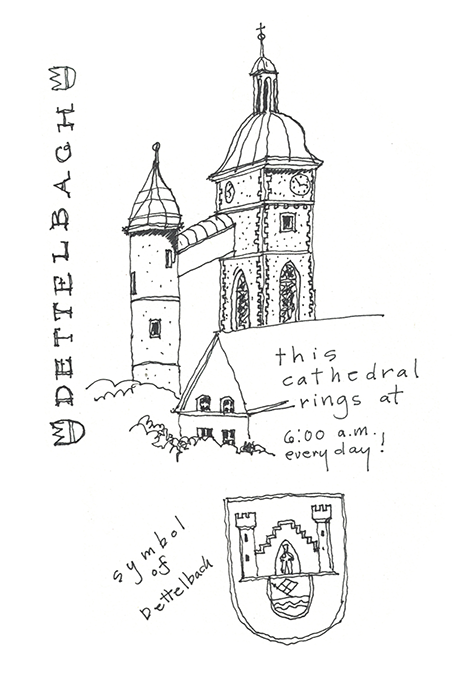 DETTELBACH
this
cathedral
rings at
6:00 a.m.
every day!
symbol
of
Dettelbach